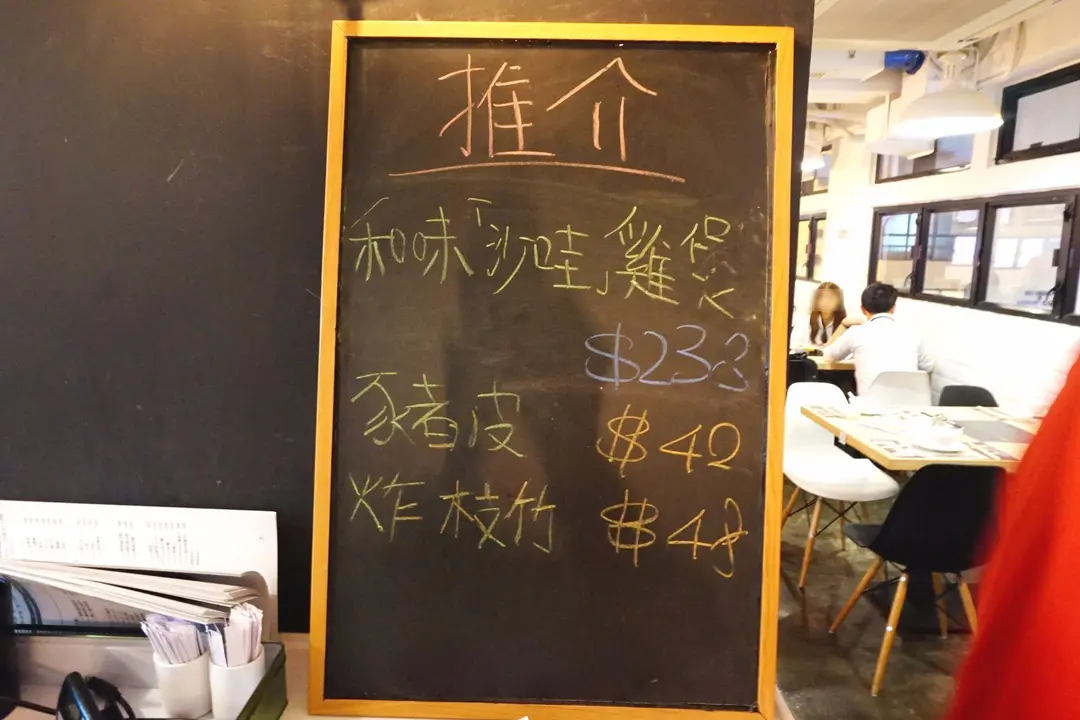 推介
和味「沙哇」雞煲
$233
豬皮 $42
炸枝竹 $48